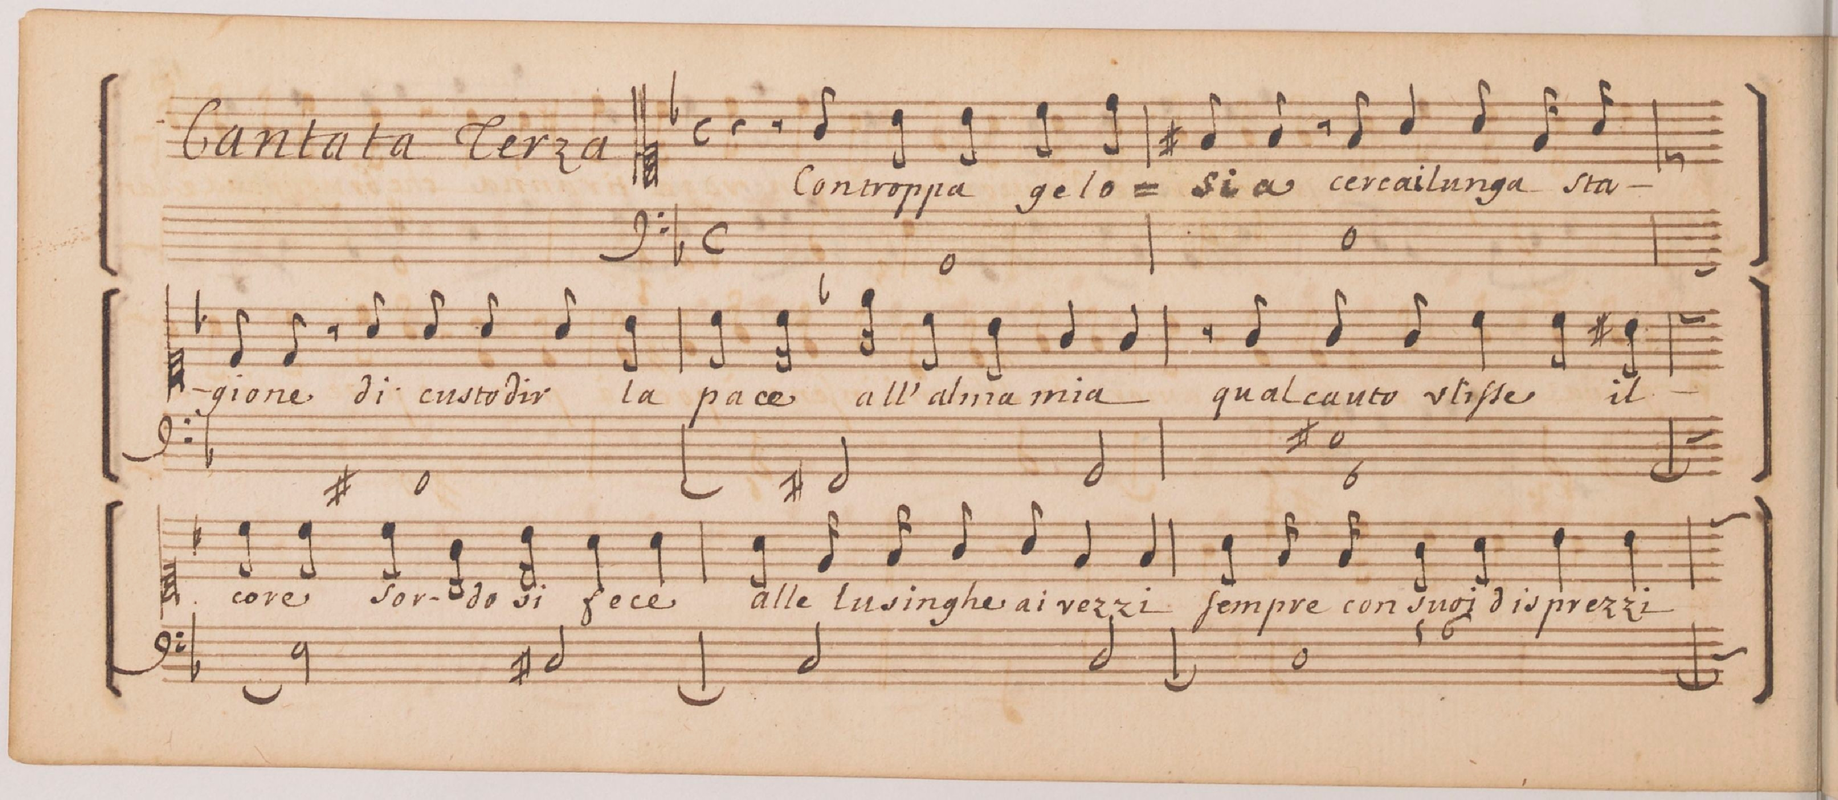 Cantata Terza
Con troppa gelo = sia cercai lunga sta-
-gione di custodir la pace all' alma mia qual cauto vlisse il
6
core sor-do si fece alle lusinghe ai vezzi sempre con suoi disprezzi
5 6